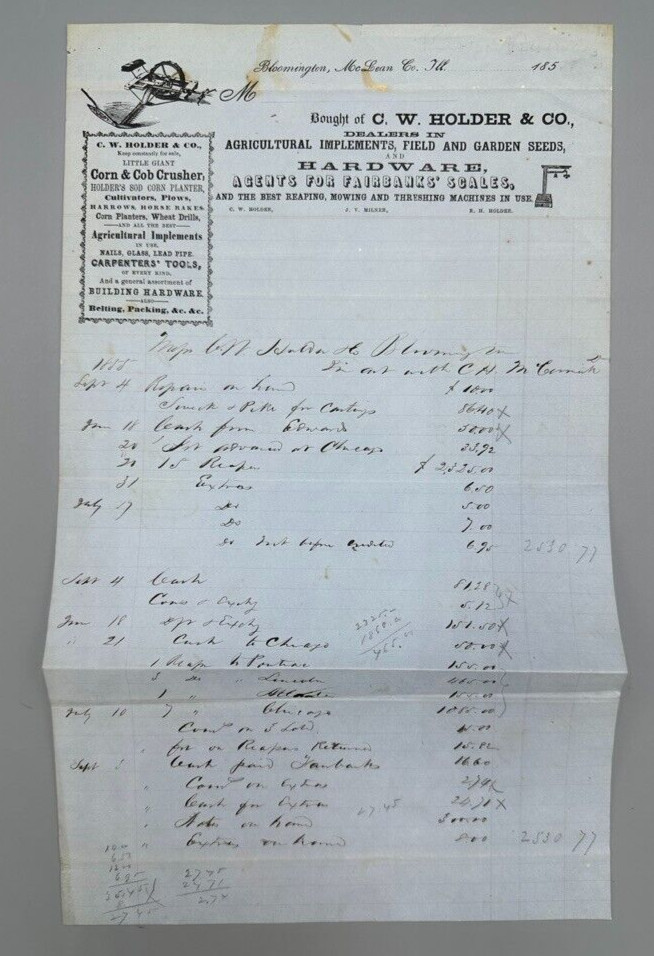 Bloomington, McLean Co. Ill. 185
M
Bought of C. W. HOLDER & CO.,
DEALERS IN
AGRICULTURAL IMPLEMENTS, FIELD AND GARDEN SEEDS,
AND
HARDWARE,
AGENTS FOR FAIRBANKS' SCALES,
AND THE BEST REAPING, MOWING AND THRESHING MACHINES IN USE.
C. W. HOLDER, J. V. MILNER, R. H. HOLDER.
C. W. HOLDER & CO.,
Keep constantly for sale,
LITTLE GIANT
Corn & Cob Crusher,
HOLDER'S SOD CORN PLANTER,
Cultivators, Plows,
HARROWS, HORSE RAKES.
Corn Planters, Wheat Drills,
AND ALL THE BEST
Agricultural Implements
IN USE.
NAILS, GLASS, LEAD PIPE.
CARPENTERS' TOOLS,
OF EVERY KIND,
And a general assortment of
BUILDING HARDWARE.
ALSO
Belting, Packing, &c. &c.
Bloomington
In acct with C H McCormick Dr
Sept 4 on hand
for Castings 86.40 x
18 Cash from Edwards 50.00 x
20 advanced at Chicago 33.92
20 15 Reapers $ 2,325.00
31 Extras 6.50
July 17 Do 5.00
Do 7.00
Do before credited 6.95 2530 77
Sept 4 Cash 81.28
5.12
18 151.50 x
" 21 Cash to Chicago 50.00 x
1 Reaper to Pontiac 155.00
3 Do " Lincoln 465.00
1 " 155.00
July 10 7 " Chicago 1085.00
on 5 Sold
" on Reapers Returned
Sept 5 Cash paid Fairbanks 16.60
" on Extras 2.74
" Cash for Extras 24.71 x
" Notes on hand 300.00
" Extras on hand 8.00 2530 77
27 45
24 71
2.74